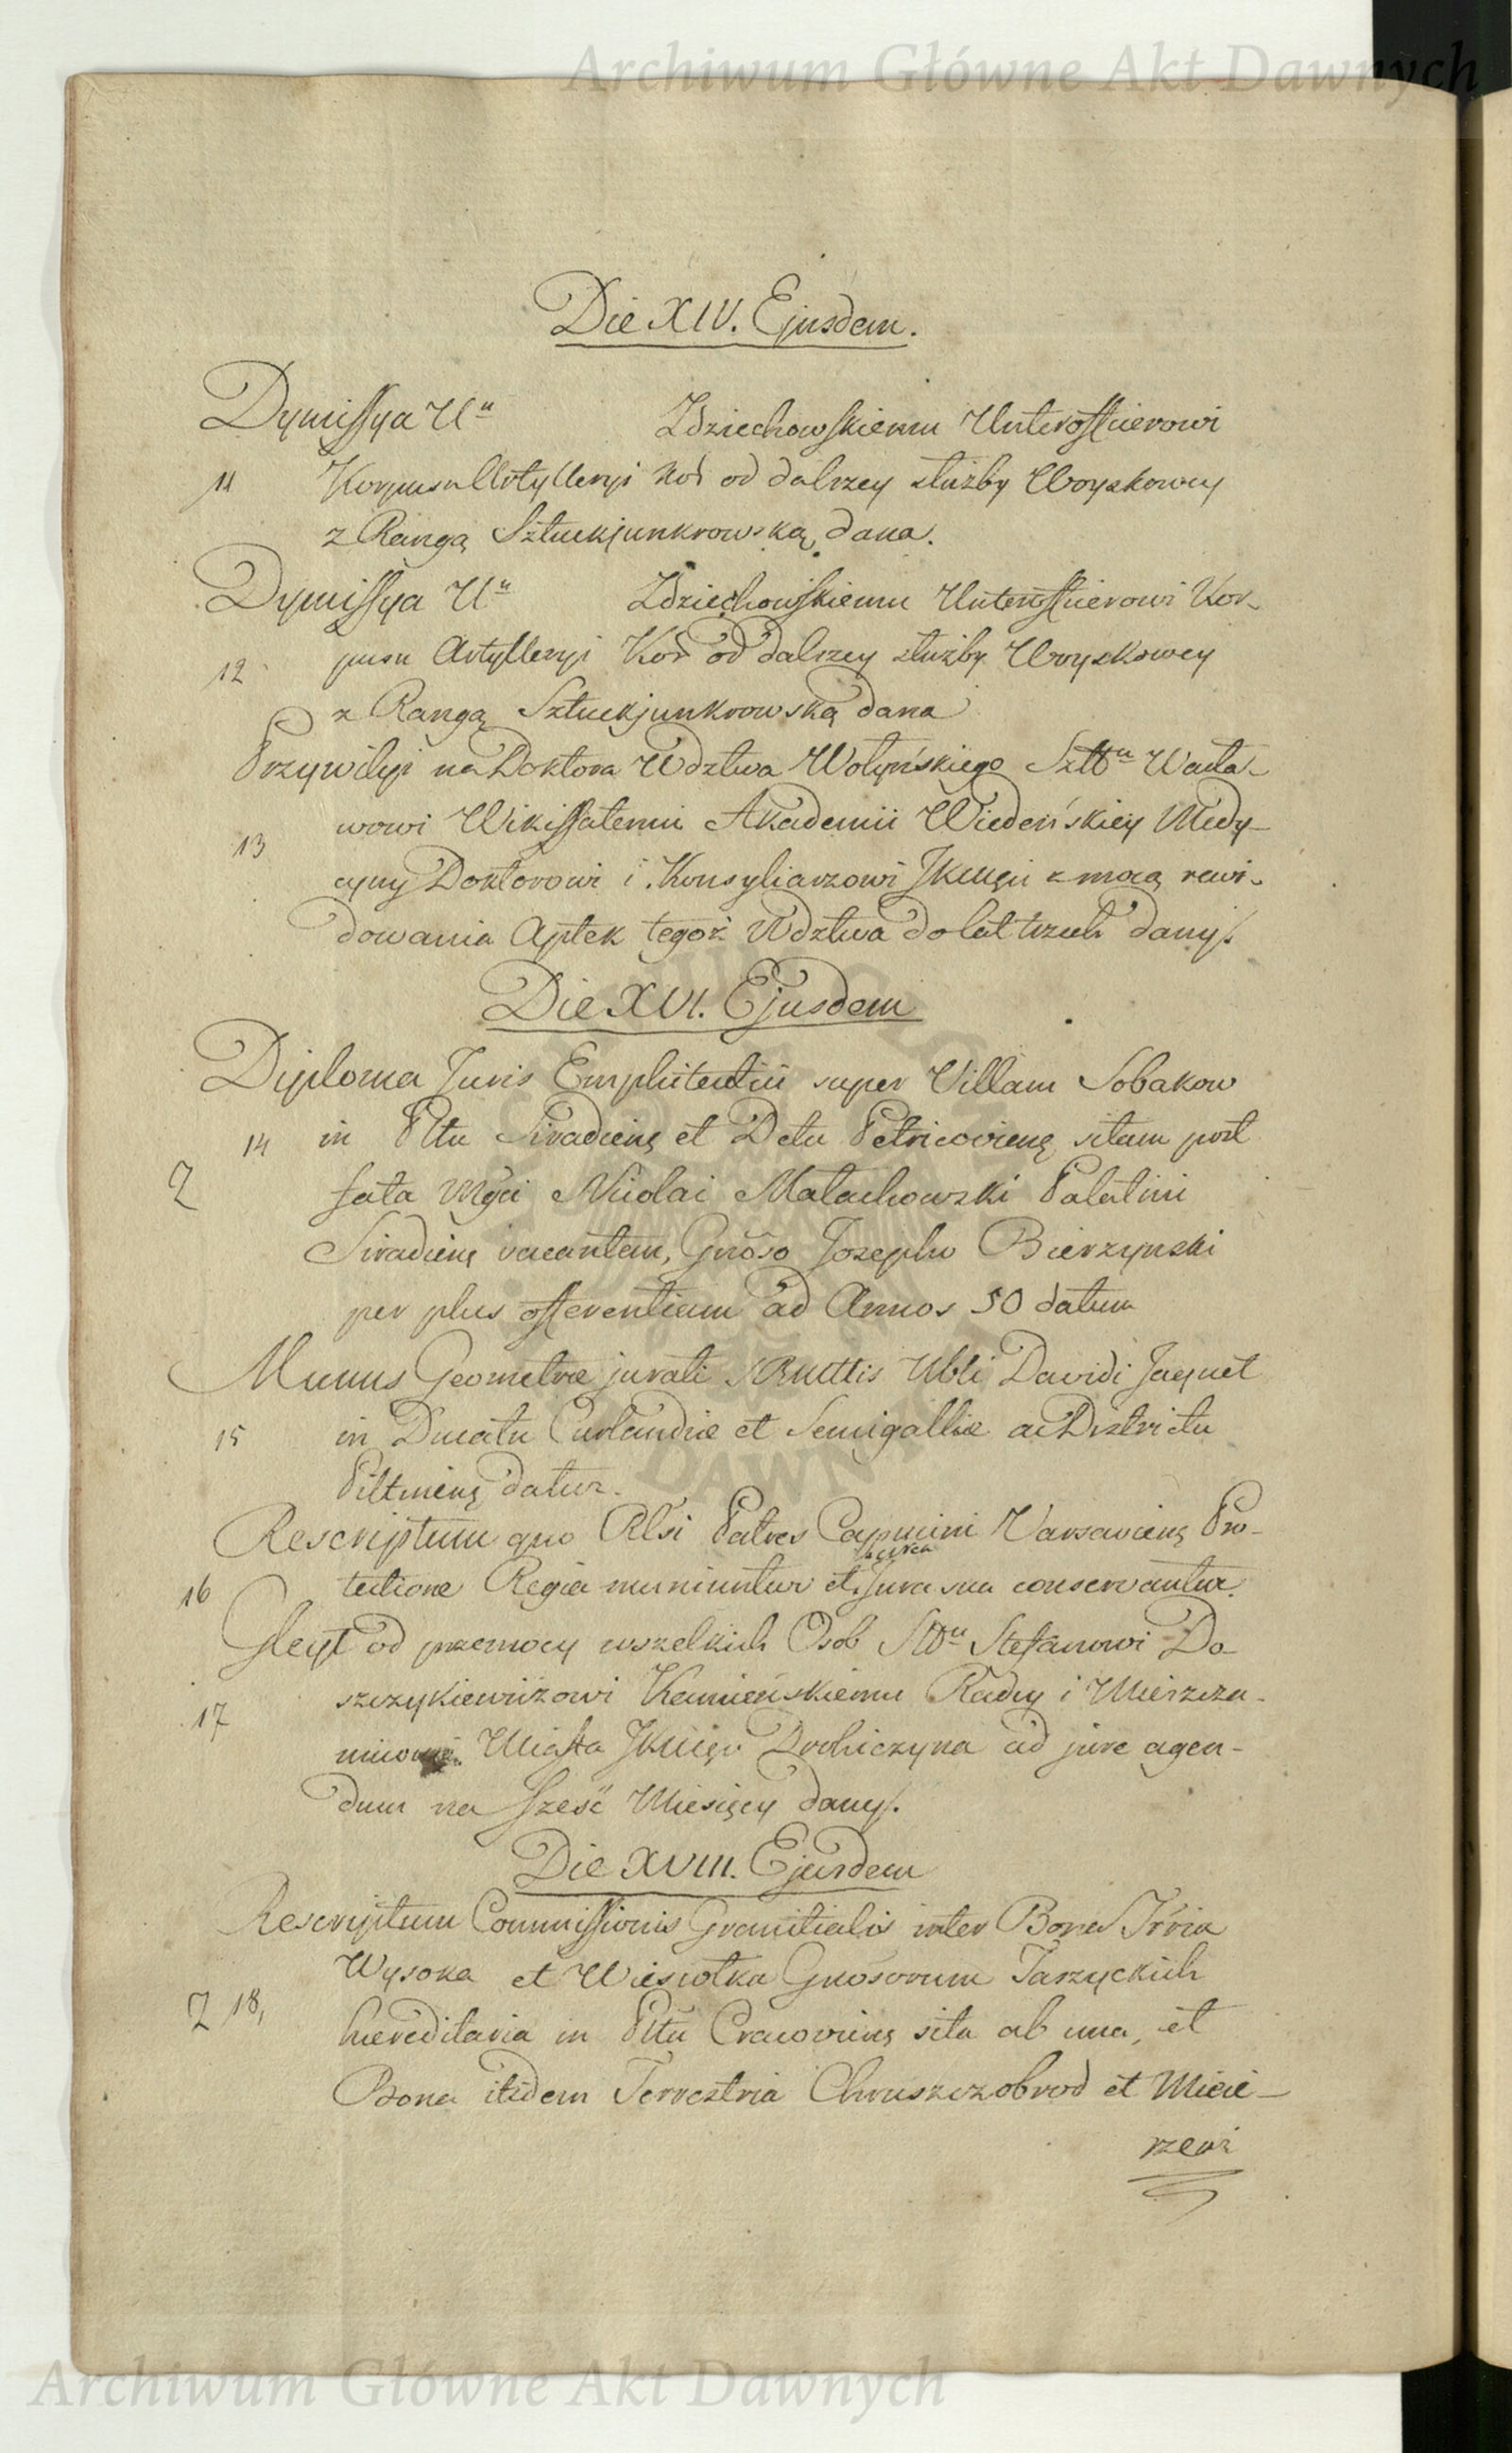 Archiwum Główne Akt Dawnych
Die XIV. Ejusdem.
Dymissya Uu Zdziechowskiemu Unterofficierowi
11 Korpusu Artylleryi Kor od dalszey służby Woyskowey
z Rangą Sztuckjunkrowską dana.
Dymissya Uu Zdziechowskiemu Unterofficierowi Kor-
12 pusu Artylleryi Kor od dalszey służby Woyskowey
z Rangą Sztuckjunkrowską dana
Przywiley na Doktora Wdztwa Wołyńskiego Wacła-
13 wowi Akademii Wiedeńskiey Medy-
cyny Doktorowi i Konsyliarzowi JKMci z mocą rewi-
dowania Aptek tegoż Wdztwa do lat trzech dany.
Die XVI. Ejusdem
Diploma Juris Emphiteutici super Villam Sobakow
14 in Pltu Siradieng et Dctu Petricovieng sitam post
Z fata Mgci Nicolai Małachowski Palatini
Siradieng vacantem, Gnoso Josepho Bierzynski
per plus offerentiam ad Annos 50 datum
Munus Geometrae jurati Nbli Davidi Jaquet
15 in Ducatu Curlandiae et Semigalliae ac Districtu
Piltineng datur.
Rescriptum quo Rlsi Patres Capucini Varsavieng Pro-
circa
16 tectione Regia muniuntur et Jura sua conservantur.
Gleyt od przemocy wszelkich Osob Sttu Stefanowi Do-
17 szczykiewiczowi Kamieńskiemu Radcy i Mieszcza-
ninowi Miasta JKMci Drohiczyna ad jure agen-
dum na sześć Miesięcy dany.
Die XVIII. Ejusdem
Rescriptum Commissionis Granitialis inter Bona Trria
Wysoka et Wiesiołka Gnosorum Jarzyckich
Z 18, haereditaria in Pltu Cracovieng sita ab una, et
Bona itidem Terrestria Chruszczobrod et Micie-
rzewi
Archiwum Główne Akt Dawnych